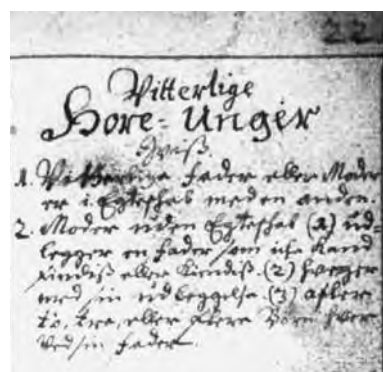 22
Vitterlige
Hore-Unger
Hviß
1. Vitterlige Fader eller Moder
er i Egteskab med en anden.
2. Moder uden Egteskab (1) ud-
legger en Fader som icke kand
eller kiendis. (2)
med sin udleggelse. (3) afler
to, tre, eller flere Børn hver
ved sin Fader.